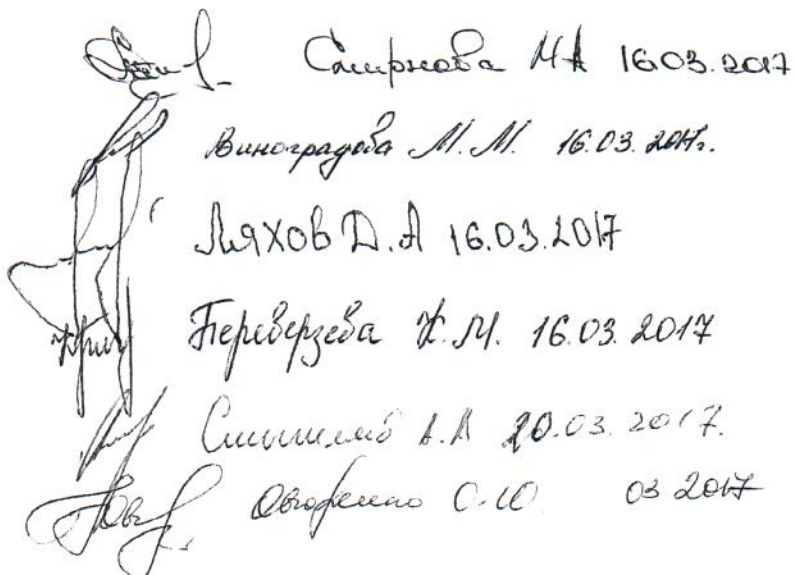 Смирнова М А 16.03.2017
Виноградова М. М. 16.03.2017г.
Ляхов Д. А 16.03.2017
Переверзева К. М. 16.03.2017
А. А 20.03.2017.
О. Ю. 03 2017